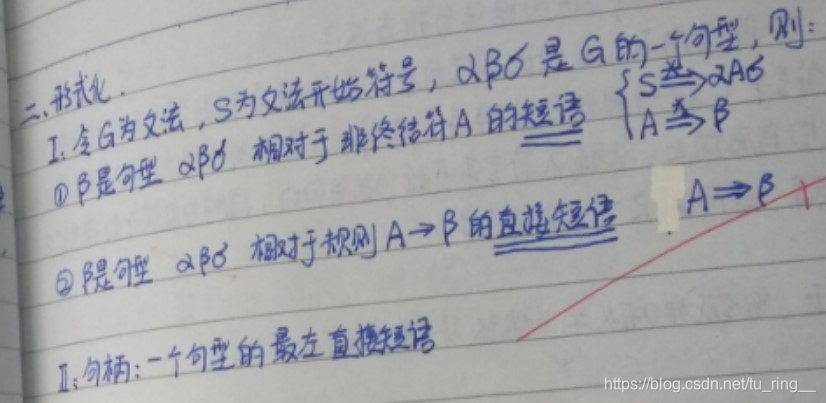 二、形式化.
I: 令G为文法, S为文法开始符号, αβδ 是 G 的一个句型, 则:
① β是句型 αβδ 相对于 非终结符 A 的短语 { S ⇒* αAδ
A ⇒* β
② β是句型 αβδ 相对于规则 A→β 的直接短语 A ⇒ β
II: 句柄: 一个句型的最左直接短语
https://blog.csdn.net/tu_ring__